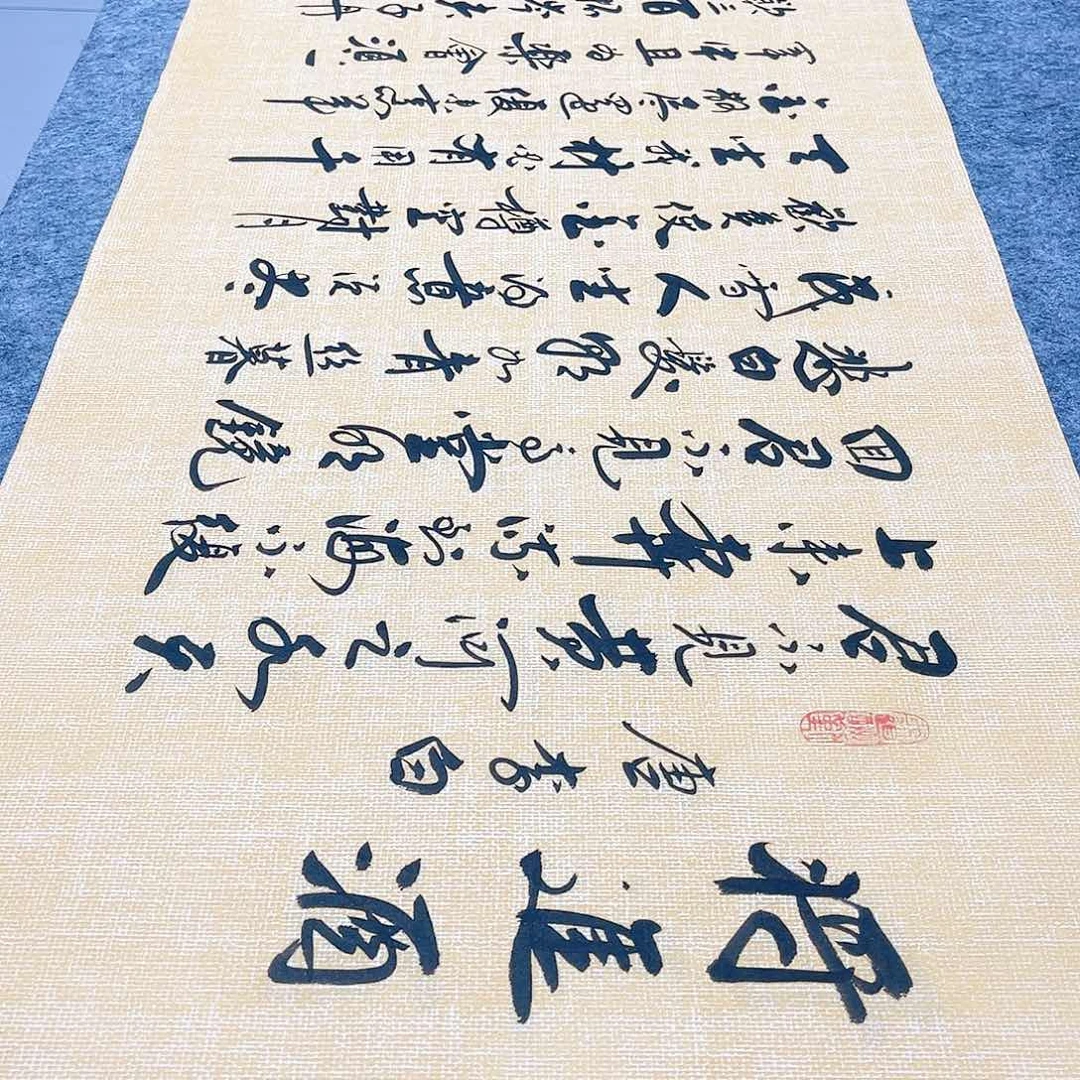 将進酒
唐李白
君不見黄河之水天
上来奔流到海不復
回君不見高堂明鏡
悲白髮朝如青絲暮
成雪人生得意須尽
歡莫使金樽空對月
天生我材必有用千
金散尽還復来烹羊
宰牛且為樂會須一
飲三百杯岑夫子丹